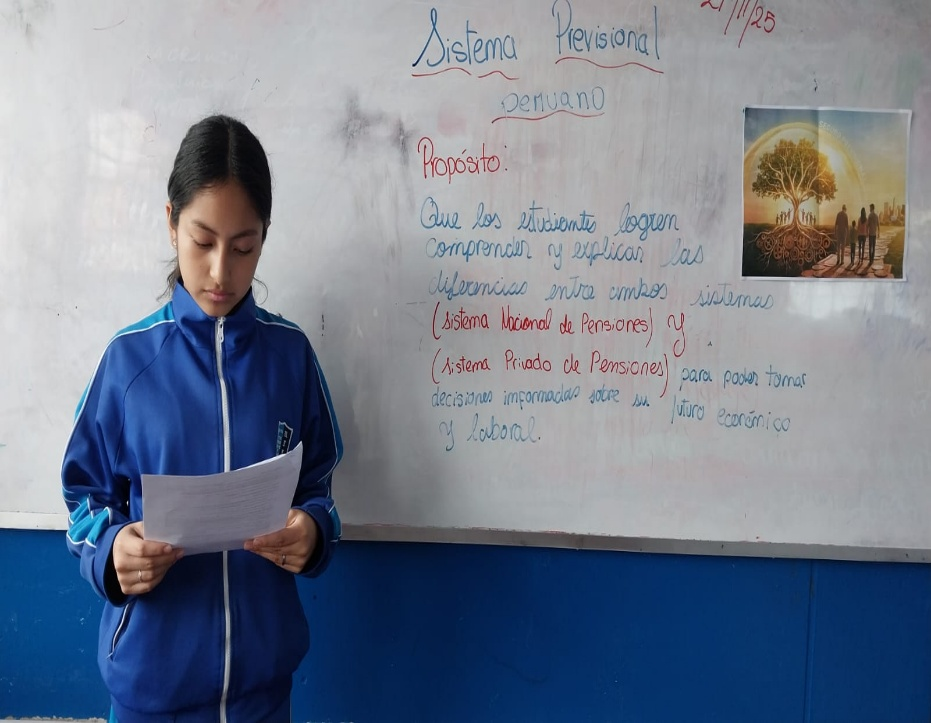 21/11/25
Sistema Previsional
peruano
Propósito:
Que los estudiantes logren
comprender y explicar las
diferencias entre ambos sistemas
(sistema Nacional de Pensiones) y
(sistema Privado de Pensiones) para poder tomar
decisiones informadas sobre su futuro económico
y laboral.